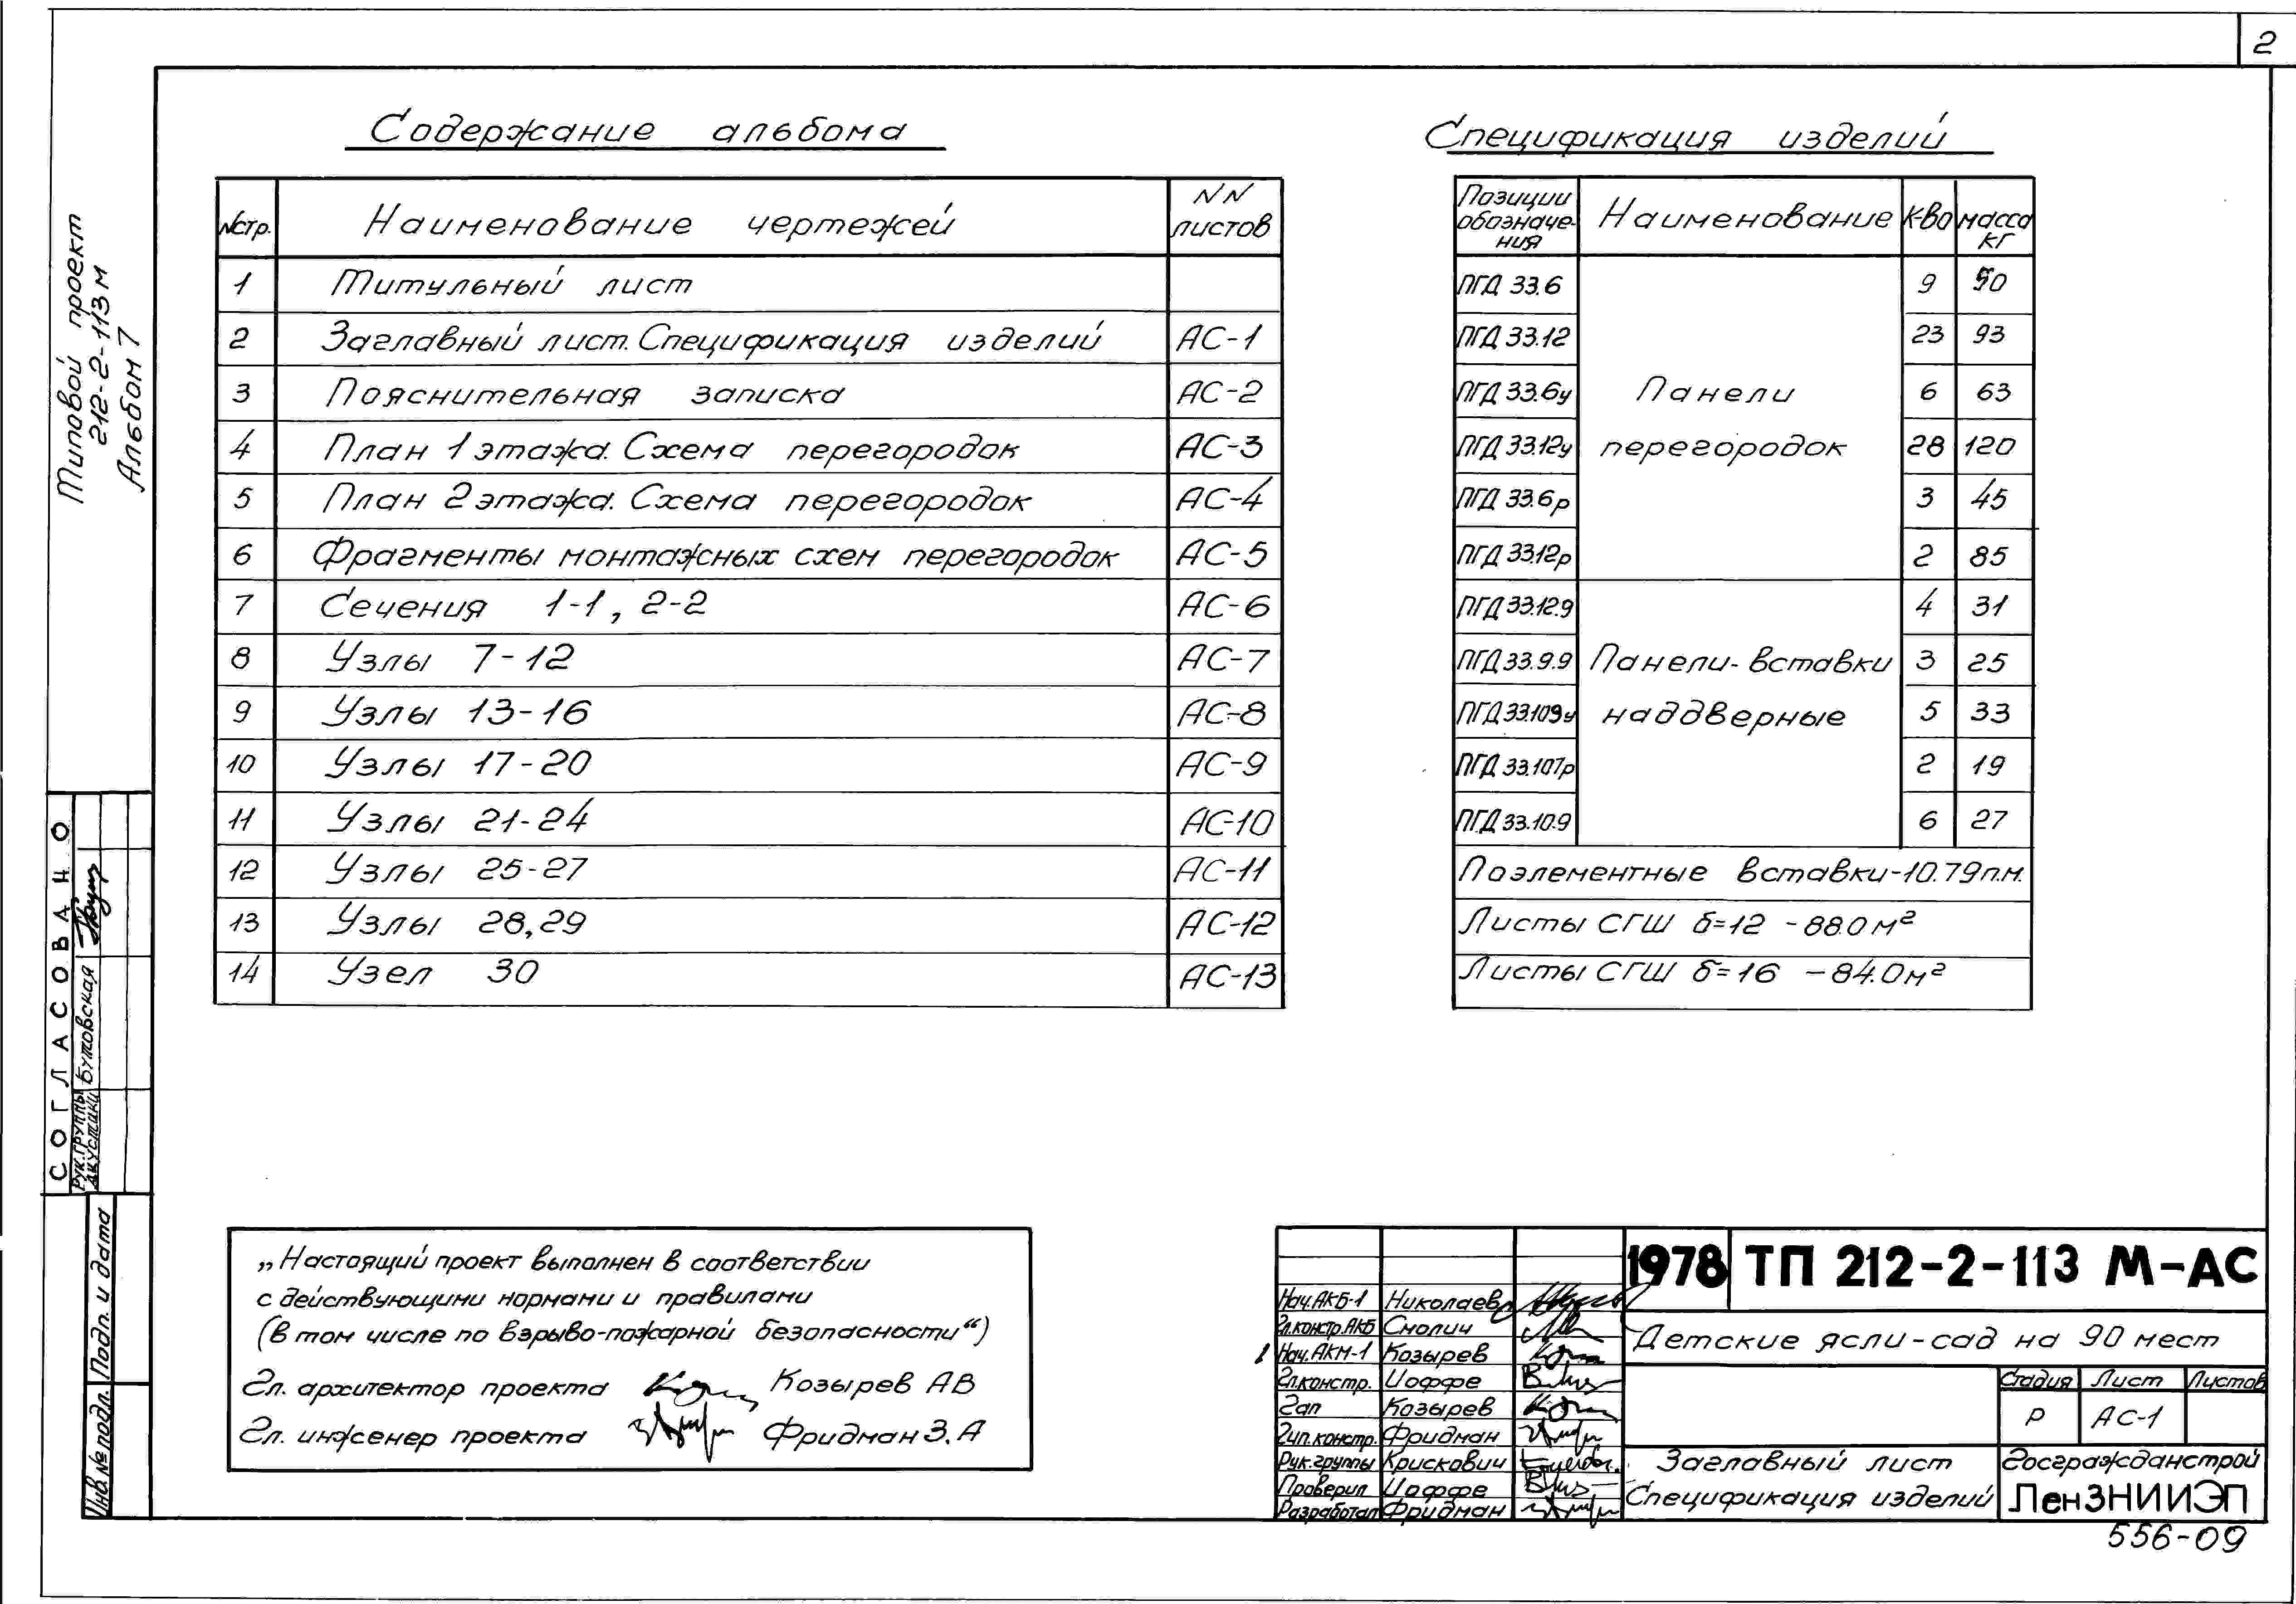 2
Типовой проект
212-2-113м
Альбом 7
Содержание альбома
№стр. Наименование чертежей NN листов
1 Титульный лист
2 Заглавный лист. Спецификация изделий АС-1
3 Пояснительная записка АС-2
4 План 1 этажа. Схема перегородок АС-3
5 План 2 этажа. Схема перегородок АС-4
6 Фрагменты монтажных схем перегородок АС-5
7 Сечения 1-1, 2-2 АС-6
8 Узлы 7-12 АС-7
9 Узлы 13-16 АС-8
10 Узлы 17-20 АС-9
11 Узлы 21-24 АС-10
12 Узлы 25-27 АС-11
13 Узлы 28,29 АС-12
14 Узел 30 АС-13
Спецификация изделий
Позиции обозначе-ния Наименование к-во масса кг
Панели перегородок
ПГД 33.6 9 50
ПГД 33.12 23 93
ПГД 33.6у 6 63
ПГД 33.12у 28 120
ПГД 33.6р 3 45
ПГД 33.12р 2 85
Панели-вставки наддверные
ПГД 33.12.9 4 31
ПГД 33.9.9 3 25
ПГД 33.109у 5 33
ПГД 33.107р 2 19
ПГД 33.10.9 6 27
Поэлементные вставки-10.79п.м.
Листы СГШ б=12 - 88.0 м²
Листы СГШ б=16 - 84.0 м²
СОГЛАСОВАНО
Рук.группы акустики Бутовская
Инв.№ подл. Подп. и дата
„Настоящий проект выполнен в соответствии
с действующими нормами и правилами
(в том числе по взрыво-пожарной безопасности“)
Гл. архитектор проекта Козырев АВ
Гл. инженер проекта Фридман З.А
1978 ТП 212-2-113 М-АС
Нач.АКБ-1 Николаев
Гл.констр.АКБ Смолич
Нач.АКМ-1 Козырев
Гл.констр. Иоффе
Гап Козырев
Гип.констр. Фридман
Рук.группы Крискович
Проверил Иоффе
Разработал Фридман
Детские ясли-сад на 90 мест
Стадия Лист Листов
Р АС-1
Заглавный лист
Спецификация изделий
Госгражданстрой
ЛенЗНИИЭП
556-09